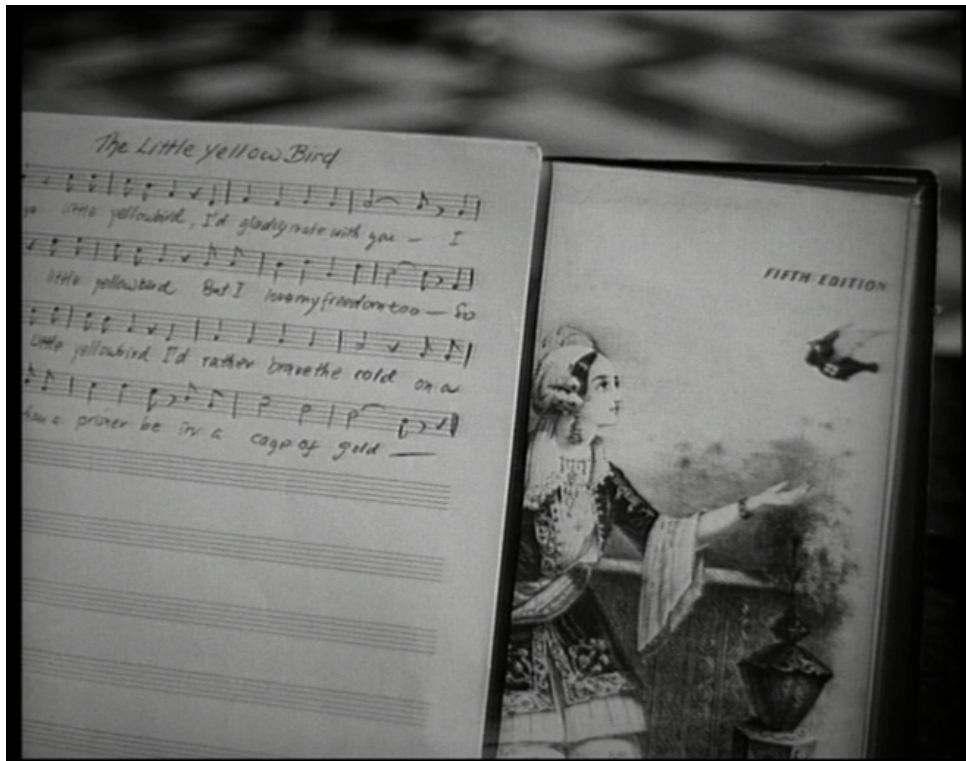 The Little Yellow Bird
little yellowbird, I'd gladly mate with you — I
little yellowbird But I love my freedom too — So
little yellowbird I'd rather brave the cold on a
be in a cage of gold —
FIFTH EDITION